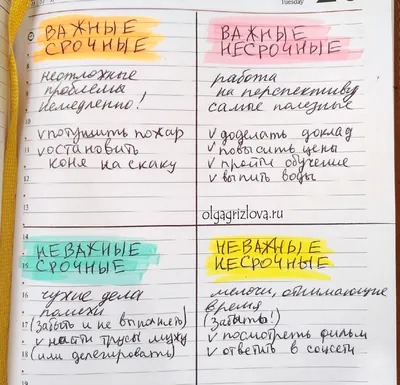 Tuesday
ВАЖНЫЕ
СРОЧНЫЕ
неотложные
проблемы
немедленно!
v потушить пожар
v остановить
коня на скаку
ВАЖНЫЕ
НЕСРОЧНЫЕ
работа
на перспективу
самые полезные
v доделать доклад
v повысить цены
v пройти обучение
v выпить воды
olgagrizlova.ru
НЕВАЖНЫЕ
СРОЧНЫЕ
чужие дела
помехи
(забыть и не выполнять)
v найти трусы мужу
(или делегировать)
НЕВАЖНЫЕ
НЕСРОЧНЫЕ
мелочи, отнимающие
время
(Забыть!)
v посмотреть фильм
v ответить в соцсети
10
11
12
13
14
15
16
17
18